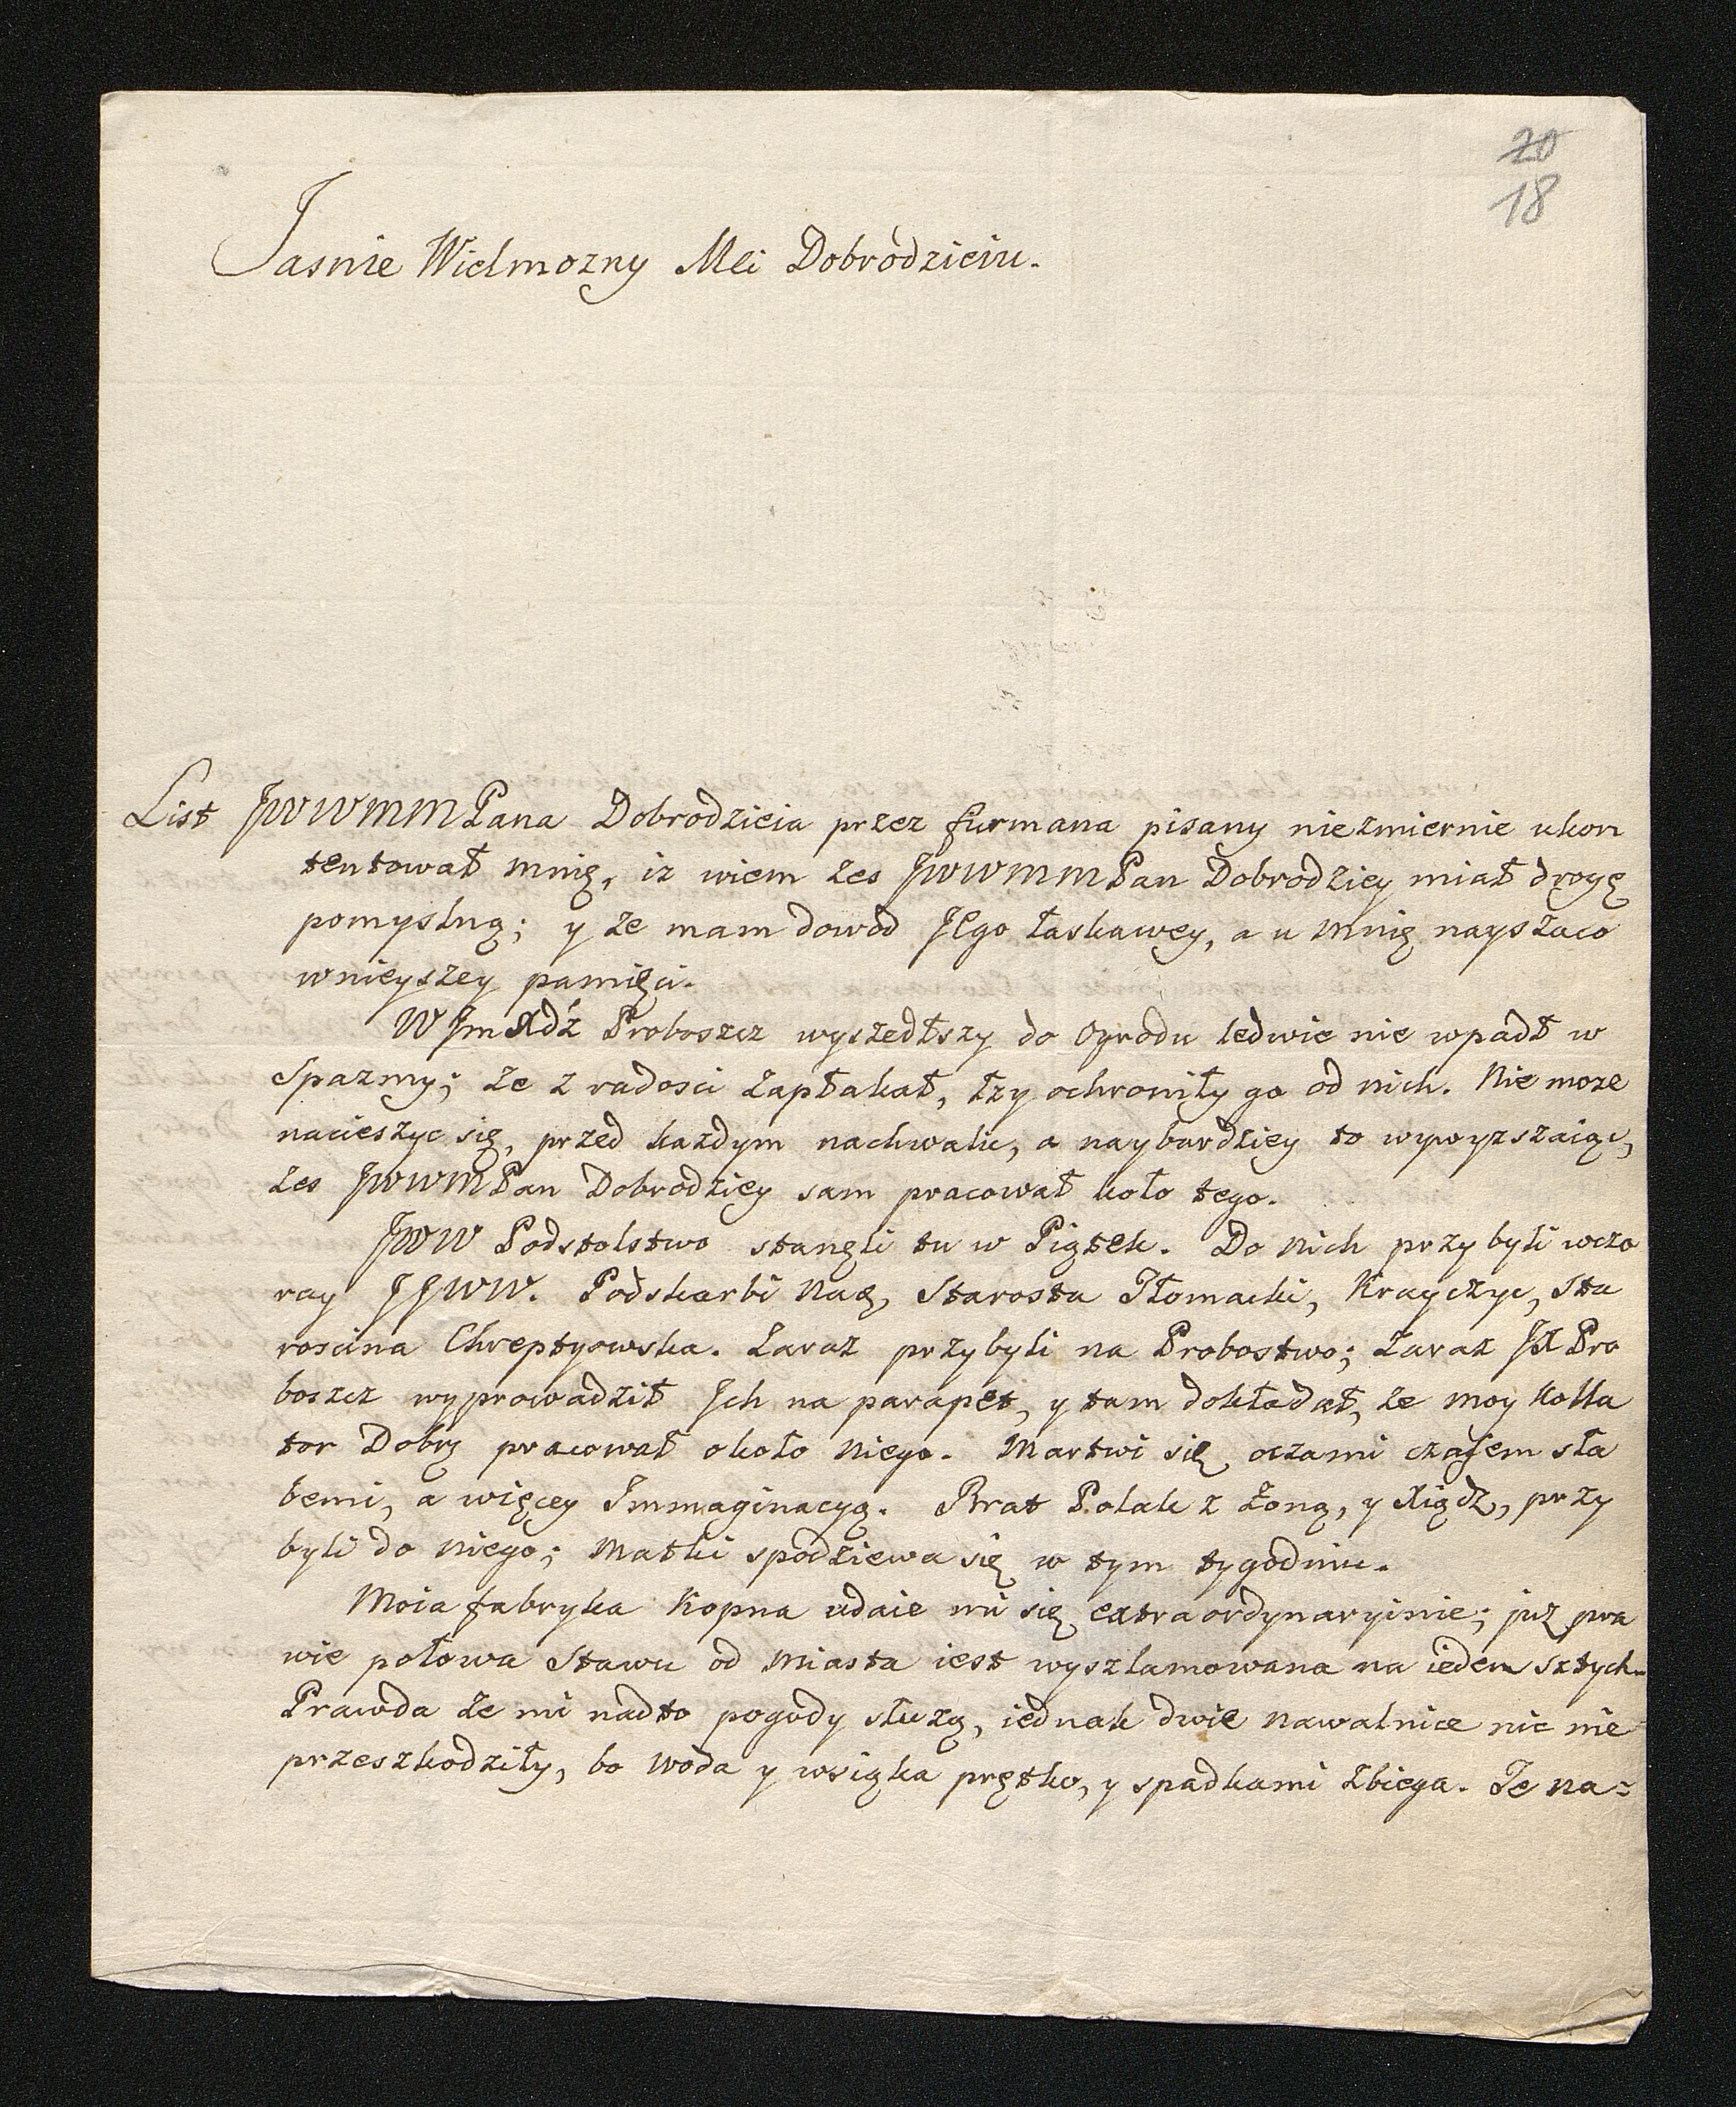 20
18
Jasnie Wielmozny Mci Dobrodzieiu.
List JWWMMPana Dobrodzieia przez furmana pisany niezmiernie ukon
tentował mnię, iz wiem zes JWWMMPan Dobrodziey miał drogę
pomyslną; y ze mam dowod JEgo łaskawey, a u mnię nayszaco
wnieyszey pamięci.
WJmXdź Proboszcz wyszedłszy do Ogrodu ledwie nie wpadł w
Spazmy; ze z radosci zapłakał, łzy ochroniły go od nich. Nie moze
nacieszyc się, przed kazdym nachwalic, a naybardziey to wywyzszaiąc,
zes JWWMPan Dobrodziey sam pracował koło tego.
JWW Podstolstwo stanęli tu w Piątek. Do nich przybyli wczo
ray JJWW. Podskarbi Nad, Starosta Tłomacki, Krayczyc, Sta
roscina Chreptyowska. Zaraz przybyli na Probostwo; zaraz JX Pro
boszcz wyprowadził Jch na parapet, y tam dokładał, ze moy Kolla
tor Dobry pracował około niego. Martwi się oczami czasem sła
bemi, a więcey Jmmaginacyą. Brat Polak z Zoną, y Xiądz, przy
byli do niego; Matki spodziewa się w tym tygodniu.
Moia fabryka Kopna udaie mi się extraordynaryinie; juz pra
wie połowa Stawu od Miasta iest wyszlamowana na ieden sztych.
Prawda ze mi nadto pogody słuzą, iednak dwie nawalnice nic nie
przeszkodziły, bo woda y wsiąka prętko, y spadkami zbiega. Te na=